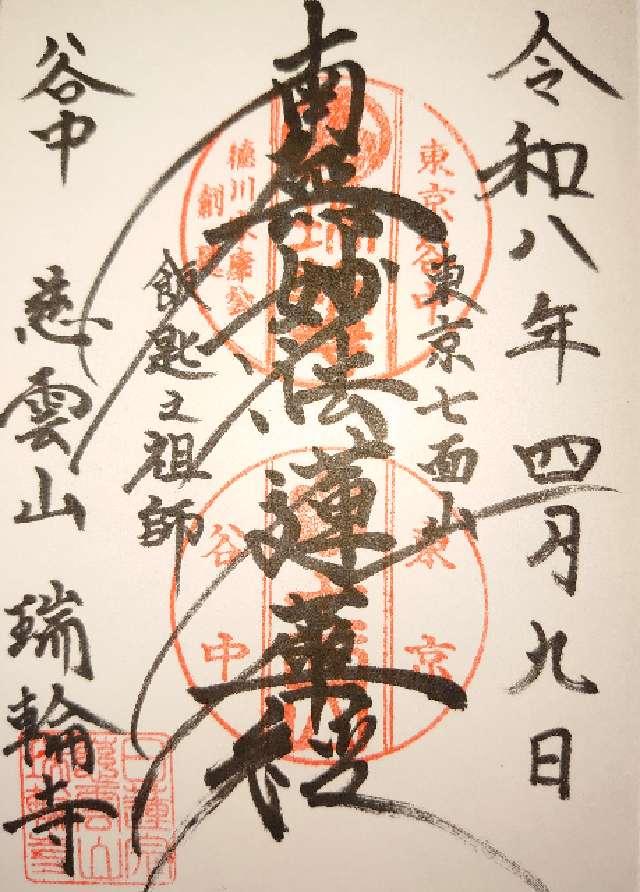 令和八年四月九日
東京七面山
南無妙法蓮華経
飯匙之祖師
谷中 慈雲山 瑞輪寺
東京谷中
徳川家康公
創建
東京
谷中